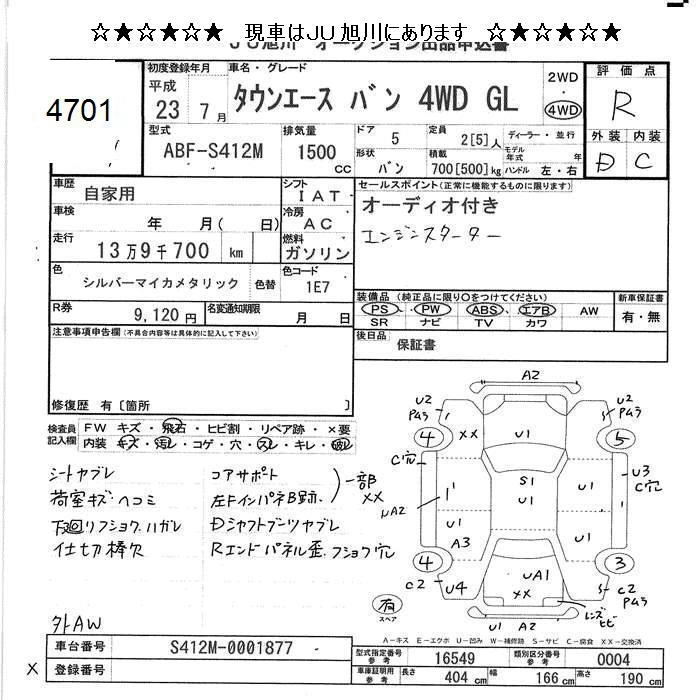 ☆★☆★☆★ 現車はJU旭川にあります ☆★☆★☆★
JU旭川 オークション出品申込書
4701
初度登録年月 車名・グレード
平成 23 7月 タウンエース バン 4WD GL
2WD ・ 4WD
評価点
R
外装 内装
D C
型式 排気量 ドア 5 定員 2[5]人 ディーラー・並行
ABF-S412M 1500 cc
形状 バン 積載 700[500]kg
モデル年式 年
ハンドル 左・右
車歴 自家用 シフト IAT
セールスポイント(正常に機能するものに限ります)
オーディオ付き
エンジンスターター
車検 年 月( 日) 冷房 AC
走行 13万9千700 km 燃料 ガソリン
色 シルバーマイカメタリック 色替 色コード 1E7
R券 9,120円 名変通知期限 月 日
装備品 (純正品に限り○をつけてください) 新車保証書
PS ・ PW ・ ABS ・ エアB ・ AW 有・無
SR ナビ TV カワ
後日品 保証書
注意事項申告欄(不具合内容等は具体的に記入して下さい)
修復歴 有〔箇所 〕
検査員記入欄
FW キズ・飛石・ヒビ割・リペア跡・×要
内装 キズ・汚レ・コゲ・穴・スレ・キレ・破レ
シートヤブレ
荷室キズ・ヘコミ
下回リフショク.ハガレ
仕切棒欠
コアサポート
左FインパネB跡.
一部××
Dシャフトブーツヤブレ
Rエンドパネル歪.フショク穴
外AW
A2
U2 PAろ
U2 PAろ
4 ×× U1 5
C穴
U3 C穴
S1
U1
UA2
U1
U1
A3
U1
4 3
C2 U4
UA1
××
C2 PAろ
レンズヒビ
有 スペア
U1 A2
A-キズ E-エクボ U-凹み W-補修跡 S-サビ C-腐食 XX-交換済
車台番号 S412M-0001877
× 登録番号
型式指定番号 参考 16549 類別区分番号 参考 0004
車庫証明用 参考 長さ 404cm 幅 166cm 高さ 190cm